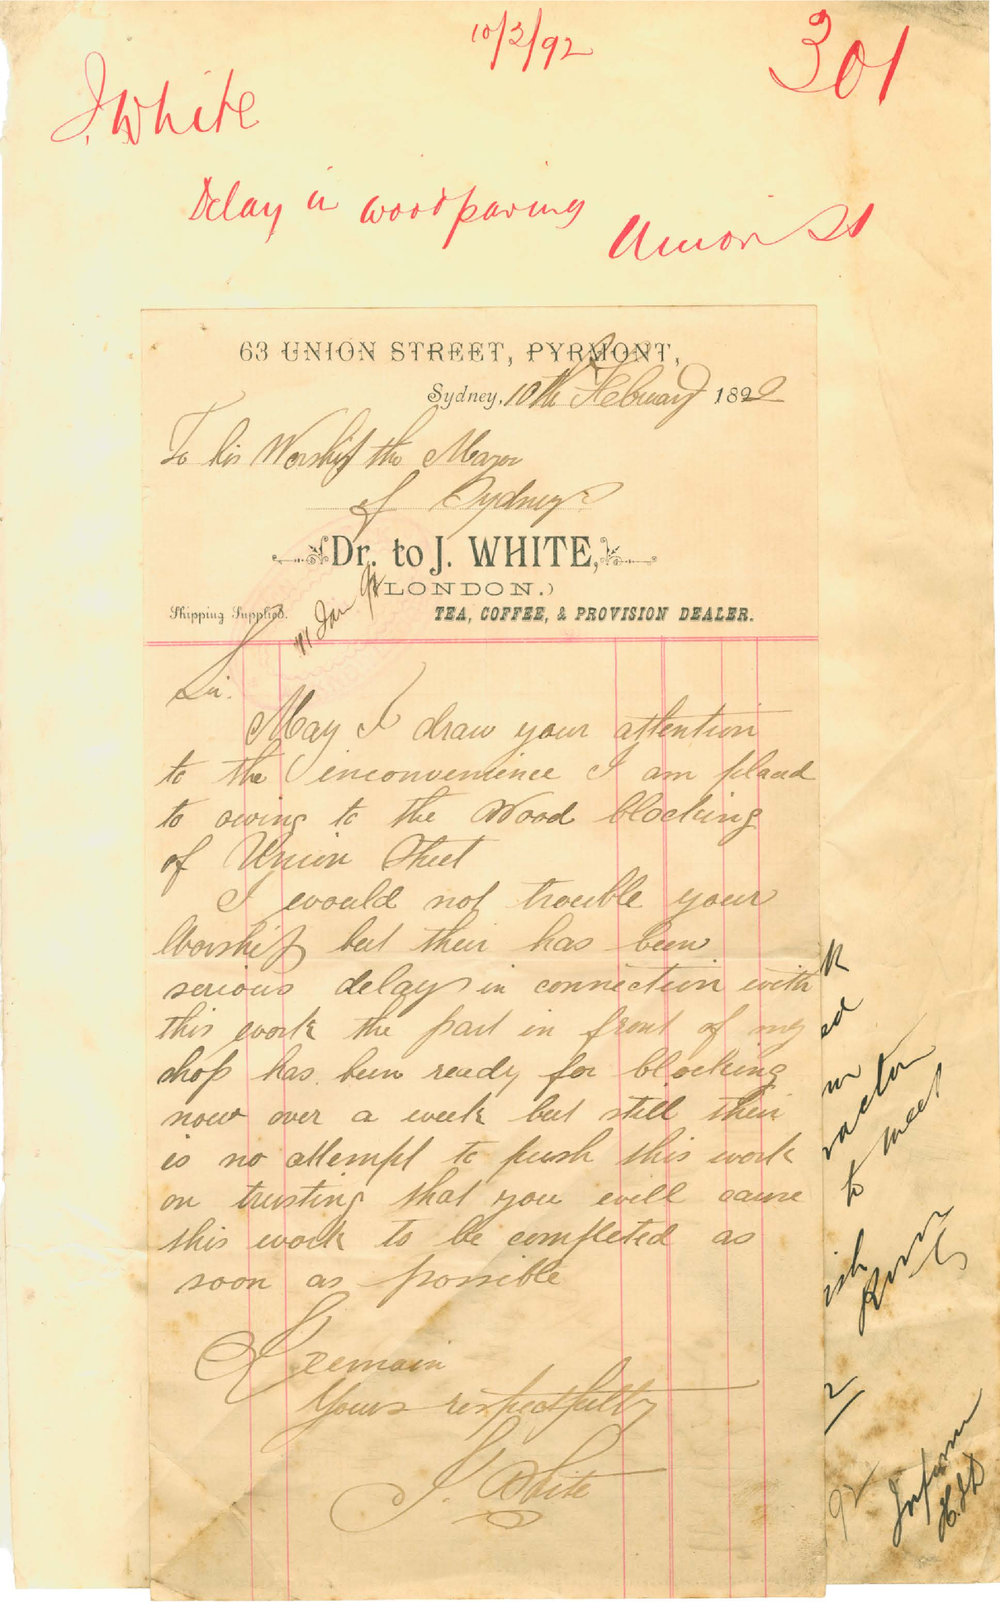 10/2/92
301
J. White
Delay in woodpaving
Union St
63 UNION STREET, PYRMONT,
Sydney, 10th February 1892
To his Worship the Mayor
of Sydney
Dr. to J. WHITE,
(LONDON.)
Shipping Supplied.
TEA, COFFEE, & PROVISION DEALER.
Sir.
May I draw your attention
to the inconvenience I am placed
to owing to the Wood blocking
of Union Street
I would not trouble your
Worship but their has been
serious delay in connection with
this work the part in front of my
shop has been ready for blocking
now over a week but still their
is no attempt to push this work
on trusting that you will cause
this work to be completed as
soon as possible
I remain
Yours respectfully
J. White
to meet
92
Inform